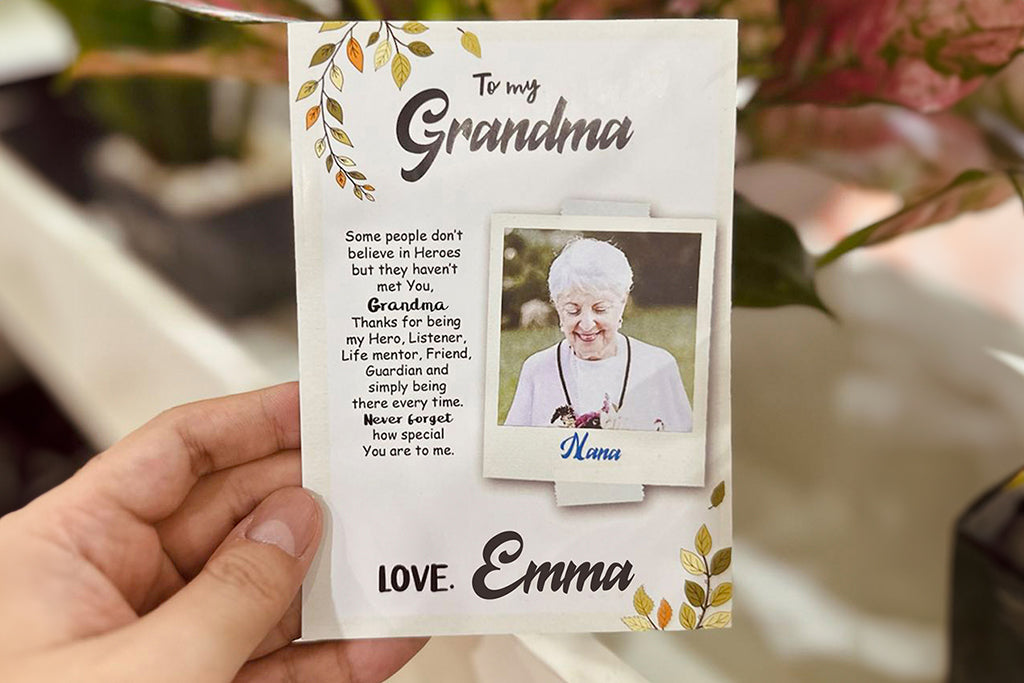 To my
Grandma
Some people don't
believe in Heroes
but they haven't
met You,
Grandma
Thanks for being
my Hero, Listener,
Life mentor, Friend,
Guardian and
simply being
there every time.
Never forget
how special
You are to me.
Nana
LOVE. Emma